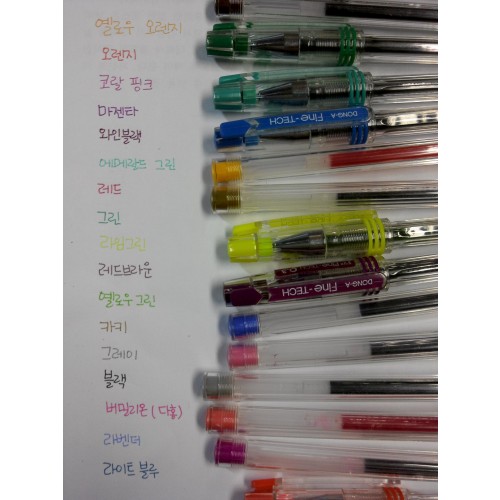 옐로우 오렌지
오렌지
코랄 핑크
마젠타
와인블랙
에메랄드 그린
레드
그린
라임그린
레드브라운
옐로우그린
카키
그레이
블랙
버밀리온 (다홍)
라벤더
라이트 블루
DONG-A Fine-TECH
DONG-A Fine-TECH